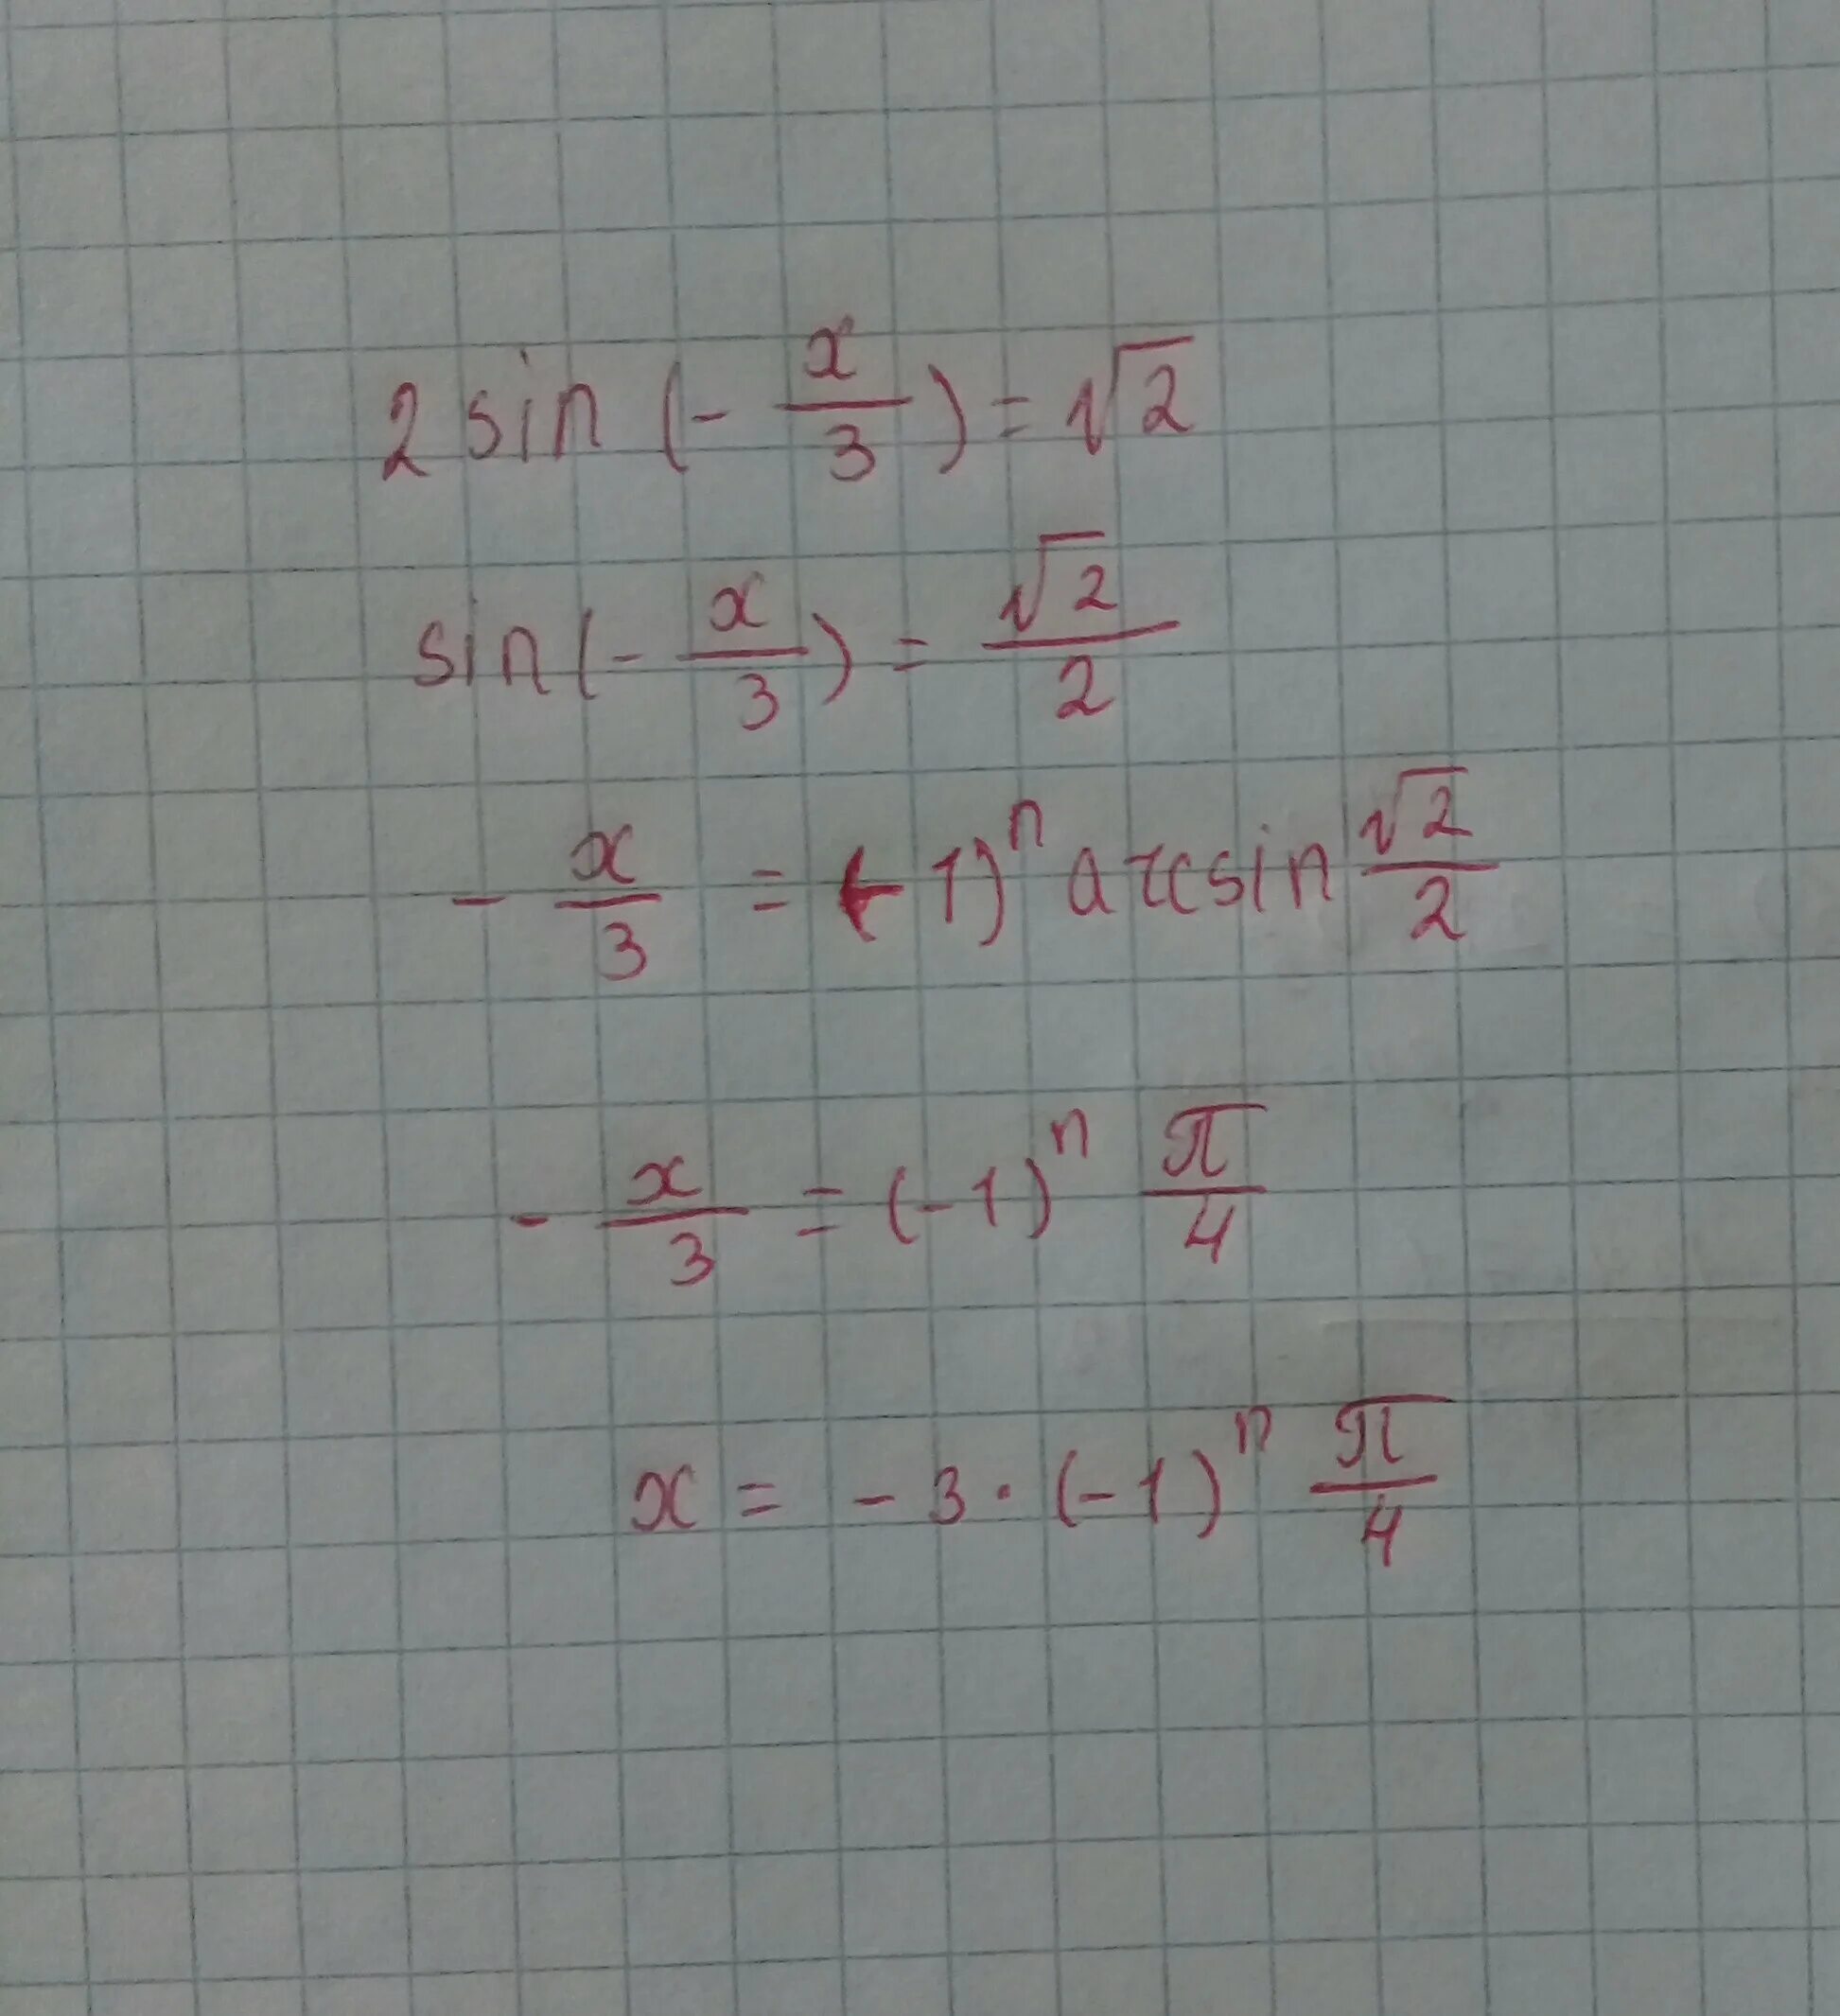 2 sin (- x/3) = √2
sin (- x/3) = √2/2
- x/3 = (-1)ⁿ arcsin √2/2
- x/3 = (-1)ⁿ π/4
x = - 3 · (-1)ⁿ π/4